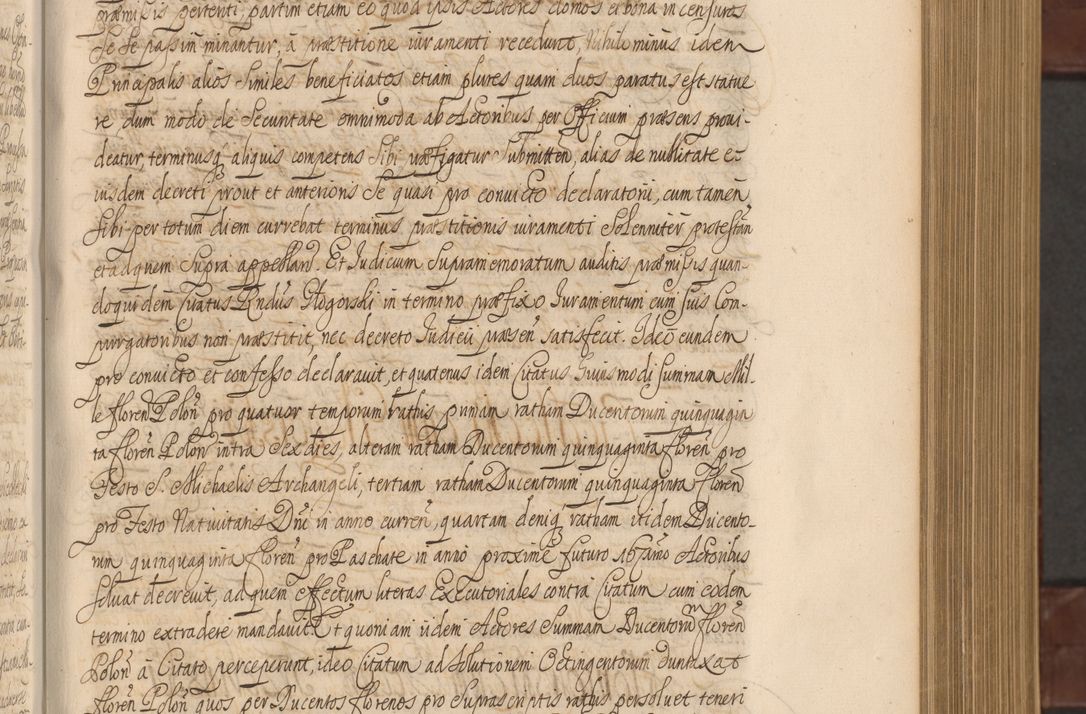 præmissis pertenti, partim etiam eo quod ipsis Actores domos et bona in censures
Se Se passim minantur, à præstitione iuramenti recedunt, Nihilominus idem
Principalis alios Similes beneficiatos etiam plures quam duos paratus est statue
re, dum modo de Securitate omnimoda ab Actoribus per Officium præsens provi-
deatur, terminusq́ aliquis competens Sibi præfigatur Submitteń, alias de nullitate e-
iusdem decreti prout et anterioris Se quasi pro convicto declaratorii, cum tamen
Sibi per totum diem currebat terminus præstitionis iuramenti Solenniter protestań
et ad quem Supra appellań. Et Iudicium Supramemoratum auditis præmissis quan-
doquidem Citatus Rńdus Głogorski in termino præfixo Iuramentum cum suis Com-
purgatoribus non præstitit, nec decreto Iudicii præseń satisfecit. Ideo eundem
pro convicto et confesso declaravit, et quatenus idem Citatus huiusmodi summam Mil-
le floreń Poloń pro quatuor temporum rathis primam ratham Ducentorum quinquagin
ta floreń Poloń intra Sex dies, alteram ratham Ducentorum quinquaginta floreń pro
Festo S. Michaelis Archangeli, tertiam ratham Ducentorum quinquaginta floreń
pro Festo Nativitatis Dńi in anno curreń, quartam deniq́ ratham itidem Ducento-
rum quinquaginta floreń pro Paschate in anno proxime futuro Actoribus
solvat decrevit, ad quem effectum literas Executoriales contra Citatum cum eodem
termino extradere mandavit. Et quoniam iidem Actores Summam Ducentorum floreń
Poloń à Citato perceperunt, ideo Citatum ad solutionem Octingentorum duntaxat
floreń Poloń quos per Ducentos florenos pro Suprascriptis rathis persolvet teneri